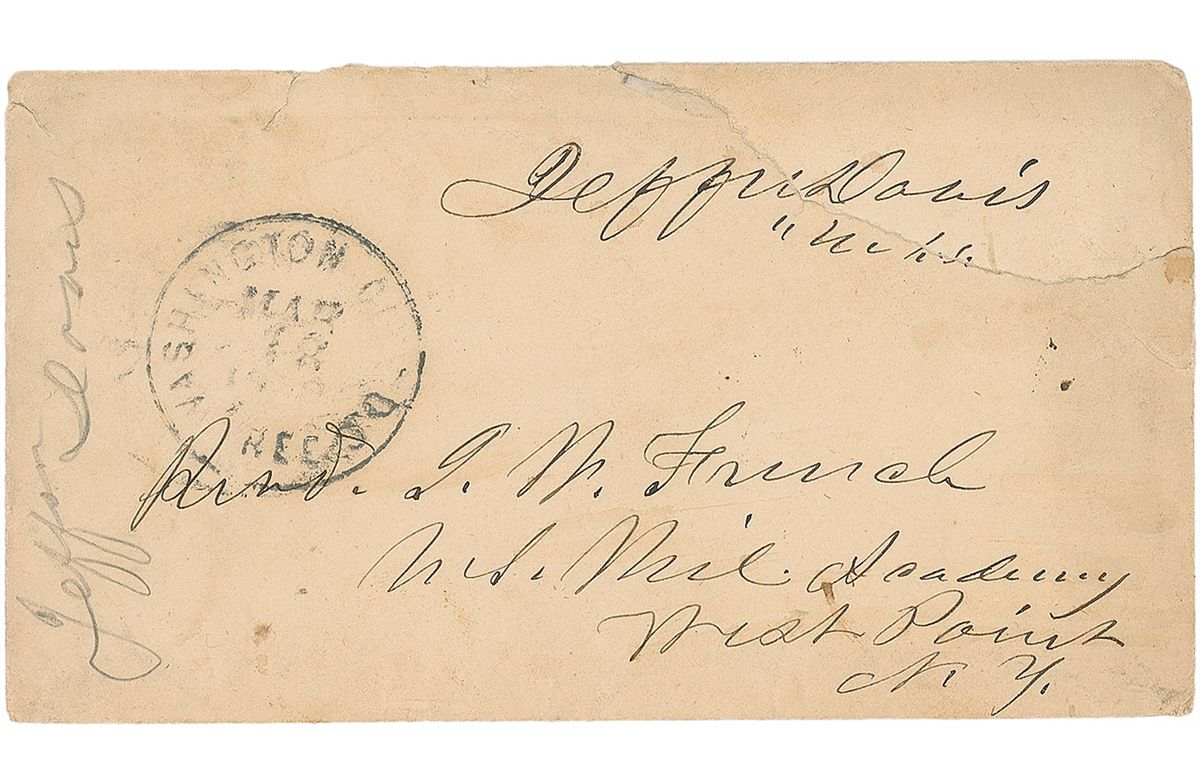 Jeffn Davis
" Miss.
WASHINGTON D.
MAR
12
FREE
Revd. J. W. French
U.S. Mil. Academy
West Point
N. Y.
Jeffn Davis